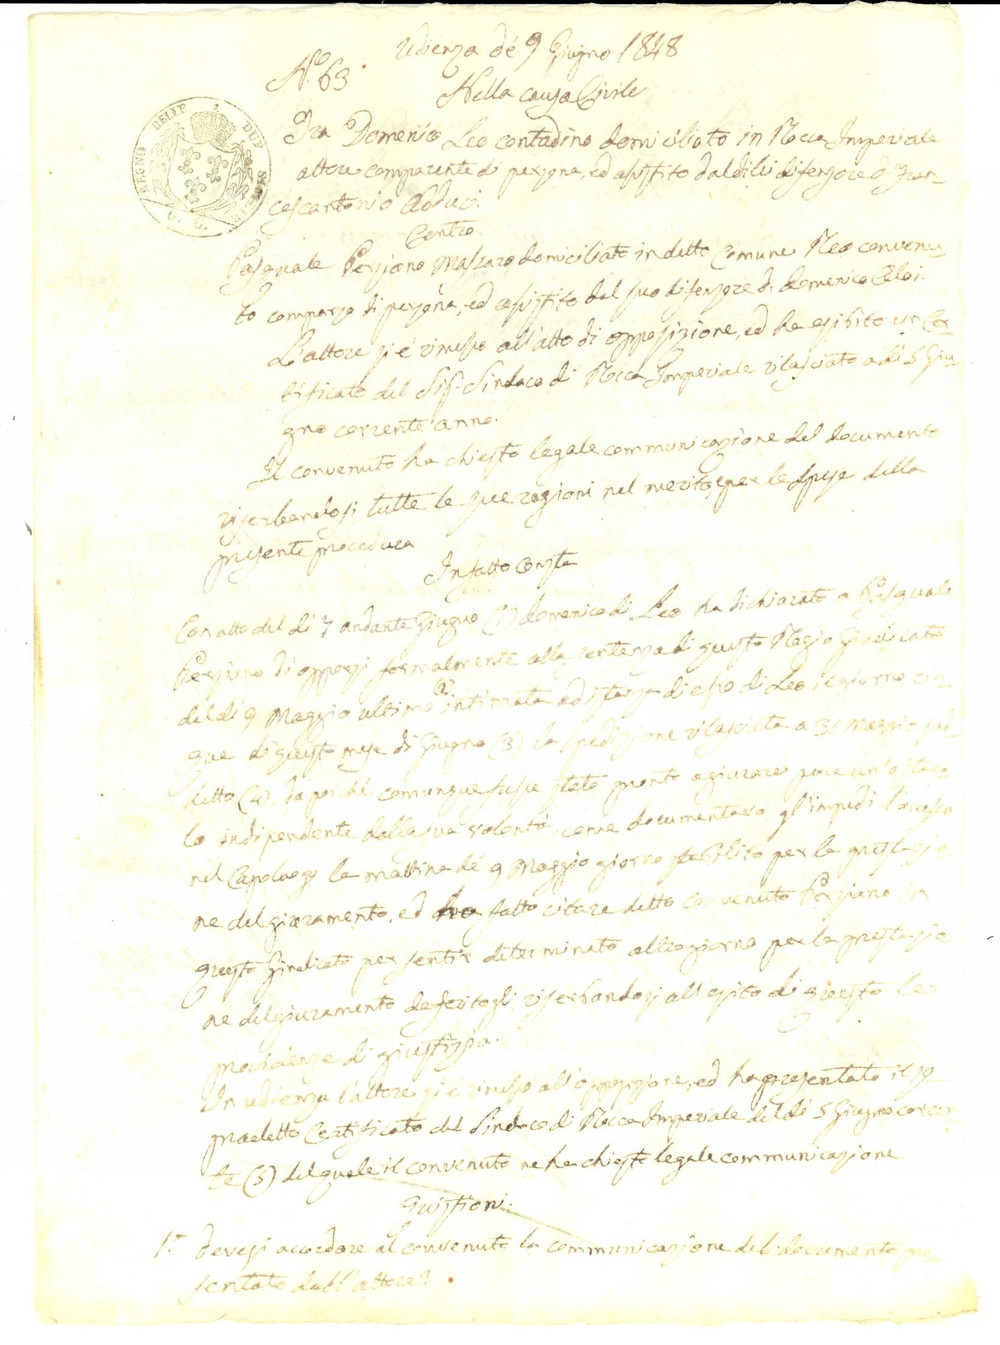 Udienza de' 9 Giugno 1848
N.° 63
Nella causa Civile
REGNO DELLE DUE SICILIE
Tra Domenico Leo contadino domiciliato in Rocca Imperiale
attore comparente di persona, ed assistito dal di lui difensore D. Fran-
cescantonio Adduci.
Contro
Pasquale Persiano Massaro domiciliato in detto Comune Reo convenu-
to comparso di persona, ed assistito dal suo difensore D. Domenico Aloi.
L'attore si è rimesso all'atto di opposizione, ed ha esibito un Cer-
tificato del Sig.r Sindaco di Rocca Imperiale rilasciato a dì 5 Giu-
gno corrente anno.
Il convenuto ha chiesto legale communicazione del documento
riserbandosi tutte le sue ragioni nel merito, e per le spese della
presente procedura
In fatto Consta
Con atto del dì 7 andante Giugno (1) Domenico di Leo ha dichiarato a Pasquale
Persiano di opporsi formalmente alla sentenza di questo Regio Giudicato
del dì 9 Maggio ultimo (2) intimata ad istanza di esso di Leo il giorno cin-
que di questo mese di Giugno (3) la spedizione rilasciata a 31 Maggio sud-
detto (4), da poiché comunque fusse stato pronto a giurare pure un'ostaco-
lo indipendente dalla sua volontà, come documentava gl'impedì l'accesso
nel Capoluogo la mattina de' 9 Maggio giorno stabilito per la prestazio-
ne del giuramento, ed ha fatto citare detto convenuto Persiano in
questo Giudicato per sentir determinato altro giorno per la prestazio-
ne del giuramento deferitogli riserbandosi all'esito di questo le
providenze di giustizia.
In udienza l'attore si è rimesso all'opposizione, ed ha presentato il so-
pradetto Certificato del Sindaco di Rocca Imperiale del dì 5 Giugno corren-
te (5) del quale il convenuto ne ha chiesto legale communicazione
Quistioni:
1.° Devesi accordare al convenuto la communicazione del documento pre-
sentato dall'attore?